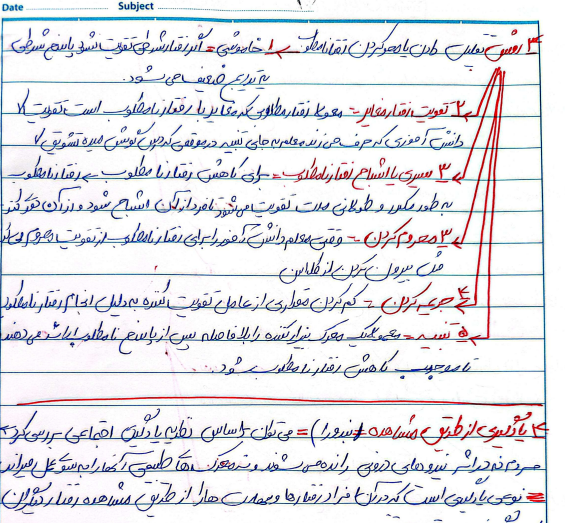 Date Subject
۳ روش تقلیل دادن یا محو کردن رفتار نامطلوب ۱ خاموشی = اگر رفتار شرطی تقویت نشود پاسخ شرطی
به تدریج ضعیف می شود.
۲ تقویت رفتار مغایر = معمولا رفتار مطلوبی که مغایر با رفتار نامطلوب است تقویت
دانش آموزی که حرف می زند معلم به جای تنبیه در موقعی که درس گوش میده تشویق
۳ سیری یا اشباع رفتار نامطلوب = برای کاهش رفتار نامطلوب رفتار نامطلوب
به طور مکرر و طولانی مدت تقویت می شود تا فرد از آن اشباع شود و از آن
۳ محروم کردن = وقتی معلم دانش آموز را برای رفتار نامطلوب از تقویت محروم
مثل بیرون کردن از کلاس
۴ جریمه کردن = کم کردن مقداری از عامل تقویت کننده به دلیل انجام رفتار نامطلوب
۵ تنبیه = محرک بیزار کننده را بلافاصله پس از پاسخ نامطلوب ارائه می دهند
تا موجب کاهش رفتار نامطلوب شود.
۴ یادگیری از طریق مشاهده (بندورا) = می توان براساس نظریه یادگیری اجتماعی بررسی کرد
مردم نه در اثر نیروهای درونی رانده می شوند و نه محرک های محیطی آنها را به سوی عمل میراند
= نوعی یادگیری است که در آن افراد رفتارها و مهارت ها را از طریق مشاهده رفتار دیگران